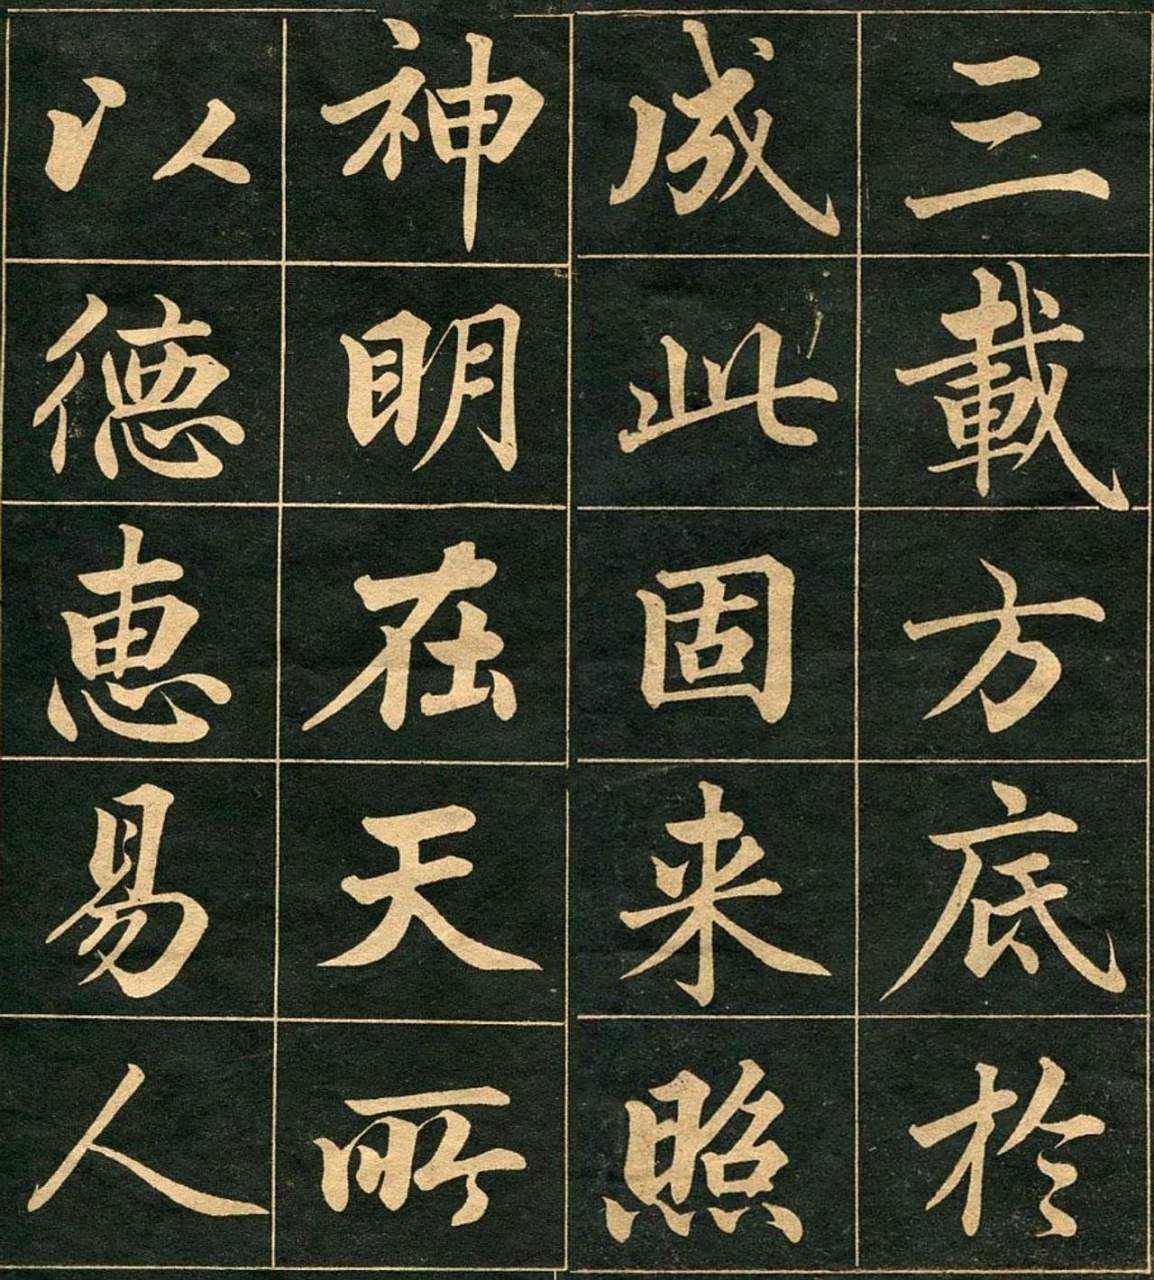 三載方底於
成此固来照
神明在天所
以德恵易人